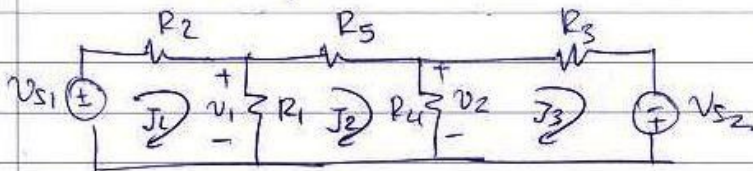 R2 R5 R3
+ +
VS1 ± J1 v1 R1 J2 R4 v2 J3 ∓ VS2
- -